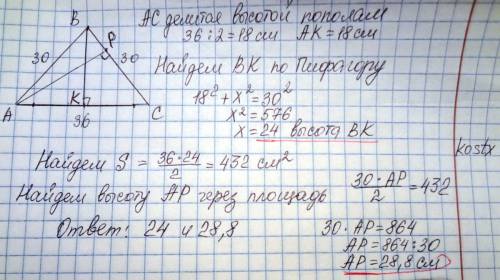 B
P
30
30
A
K
C
36
AC делится высотой пополам
36:2=18 см AK=18 см
Найдем BK по Пифагору
18² + x² = 30²
x² = 576
x = 24 высота BK
Найдем S = 36·24/2 = 432 см²
Найдем высоту AP через площадь
30·AP/2 = 432
30·AP=864
AP=864:30
AP=28,8 см
Ответ: 24 и 28,8
kostx